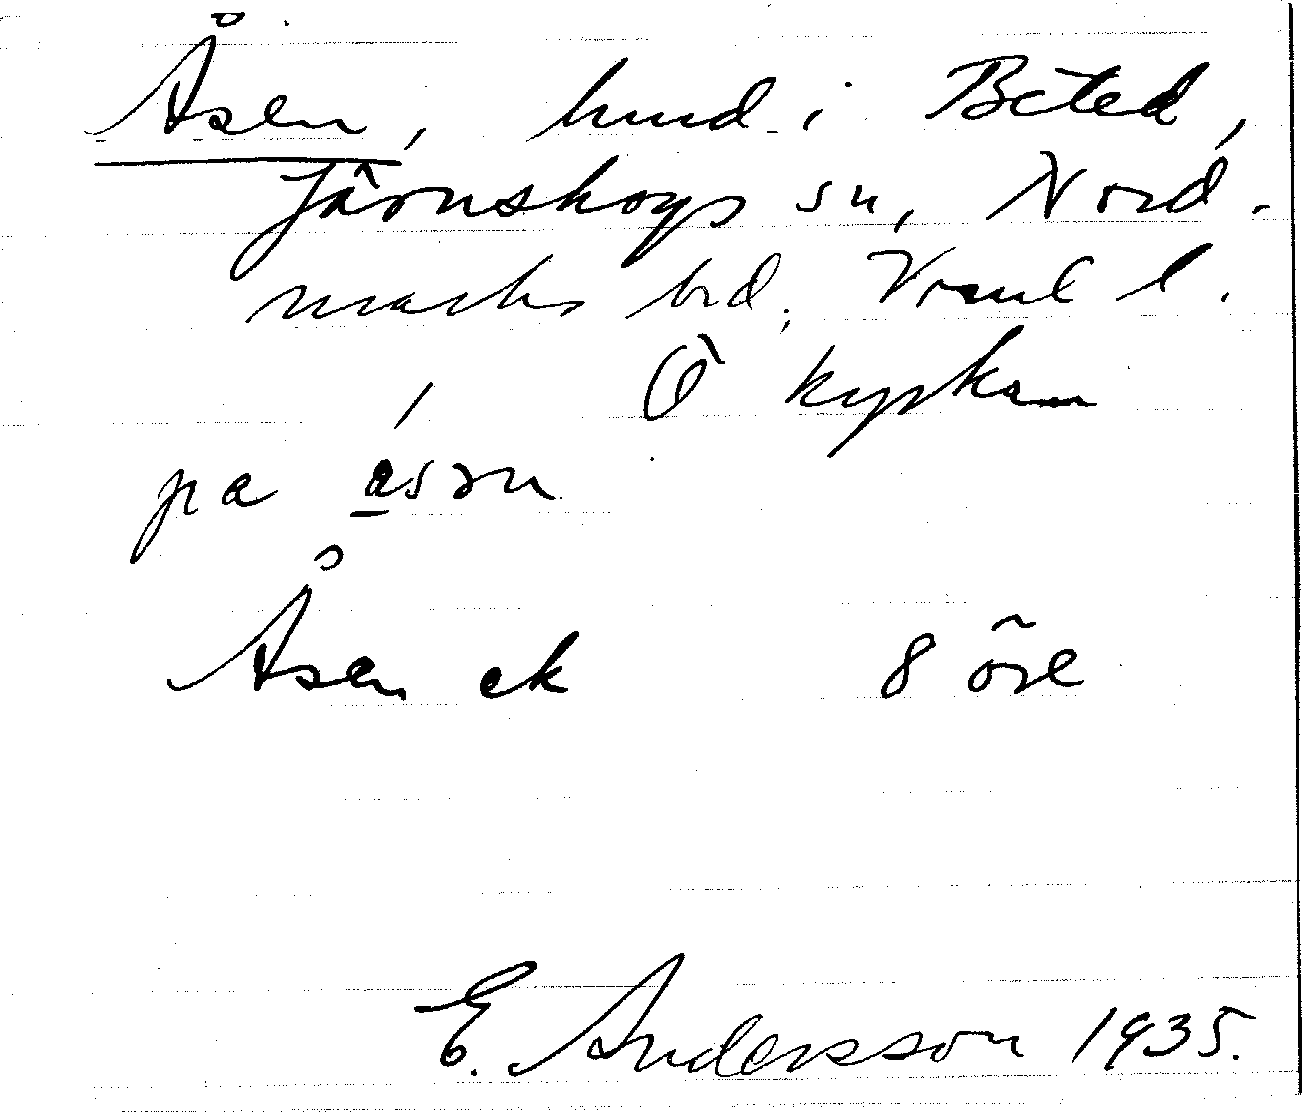 Åsen, hmd i Beted,
Järnskogs sn, Nord-
marks hd, Vrml l.
Ö kyrkan
pa ásɔn
Åsen ek 8 öre
E. Andersson 1935.